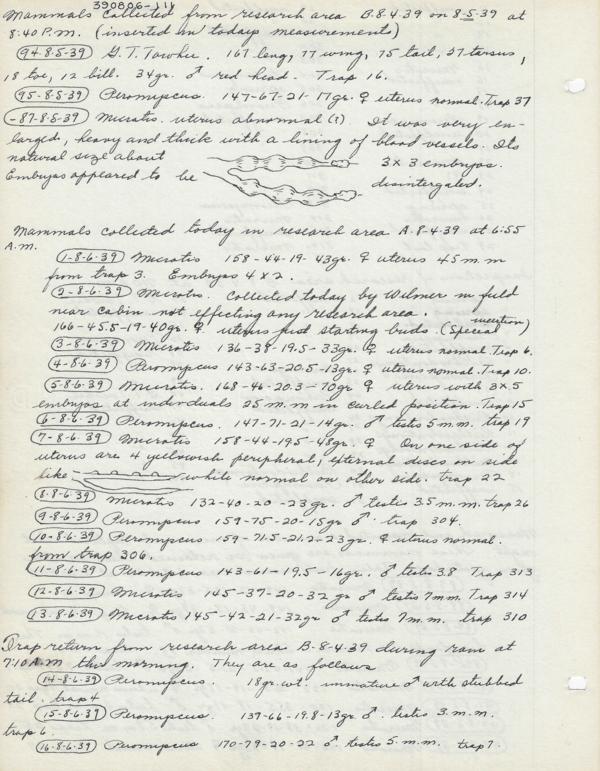 390806-111
Mammals collected from research area B.8-4-39 on 8-5-39 at
8:40 P.M. (inserted in todays measurements)
94-8-5-39 G.T. Towhee. 167 leng, 77 wing, 75 tail, 27 tarsus,
18 toe, 12 bill. 34gr. ♂ red head. Trap 16.
95-8-5-39 Peromyscus. 147-67-21-17gr. ♀ uterus normal. Trap 37
-87-8-5-39 Microtis. uterus abnormal (?) It was very en-
larged, heavy and thick with a lining of blood vessels. Its
natural size about 3 x 3 embryos.
Embryos appeared to be disintergated.
Mammals collected today in research area A.8-4-39 at 6:55
A.M.
1-8-6-39 Microtis 158-44-19-43gr. ♀ uterus 45 m.m
from trap 3. Embryos 4 x 2.
2-8-6-39 Microtis. Collected today by Wilmer in field
near cabin not effecting any research area.
166-45.5-19-40gr. ♀ uterus just starting buds. (Special mention)
3-8-6-39 Microtis 136-38-19.5-33gr. ♀ uterus normal Trap 6.
4-8-6-39 Peromyscus 143-63-20.5-13gr. ♀ uterus normal. Trap 10.
5-8-6-39 Microtis. 168-46-20.3-70gr ♀ uterus with 3 x 5
embryos at individuals 25 m.m in curled position. Trap 15
6-8-6-39 Peromyscus. 147-71-21-14gr. ♂ testis 5 m.m. trap 19
7-8-6-39 Microtis 158-44-19.5-48gr. ♀ On one side of
uterus are 4 yellowish peripheral, external discs on side
like white normal on other side. trap 22
8-8-6-39 Microtis 132-40-20-23gr. ♂ testis 3.5 m.m. trap 26
9-8-6-39 Peromyscus 159-75-20-15gr ♂ trap 304.
10-8-6-39 Peromyscus 159-71.5-21.2-23gr. ♀ uterus normal.
from trap 306.
11-8-6-39 Peromyscus 143-61-19.5-16gr. ♂ testis 3.8 Trap 313
12-8-6-39 Microtis 145-37-20-32gr ♂ testis 7mm. Trap 314
13-8-6-39 Microtis 145-42-21-32gr ♂ testis 7m.m. trap 310
Trap return from research area B-8-4-39 during rain at
7:10 A.M this morning. They are as follows
14-8-6-39 Peromyscus. 18gr. wt. immature ♂ with stubbed
tail. trap 4
15-8-6-39 Peromyscus. 137-66-19.8-13gr ♂. testis 3.m.m.
trap 6.
16-8-6-39 Peromyscus 170-79-20-22 ♂. testis 5.m.m. trap 7.